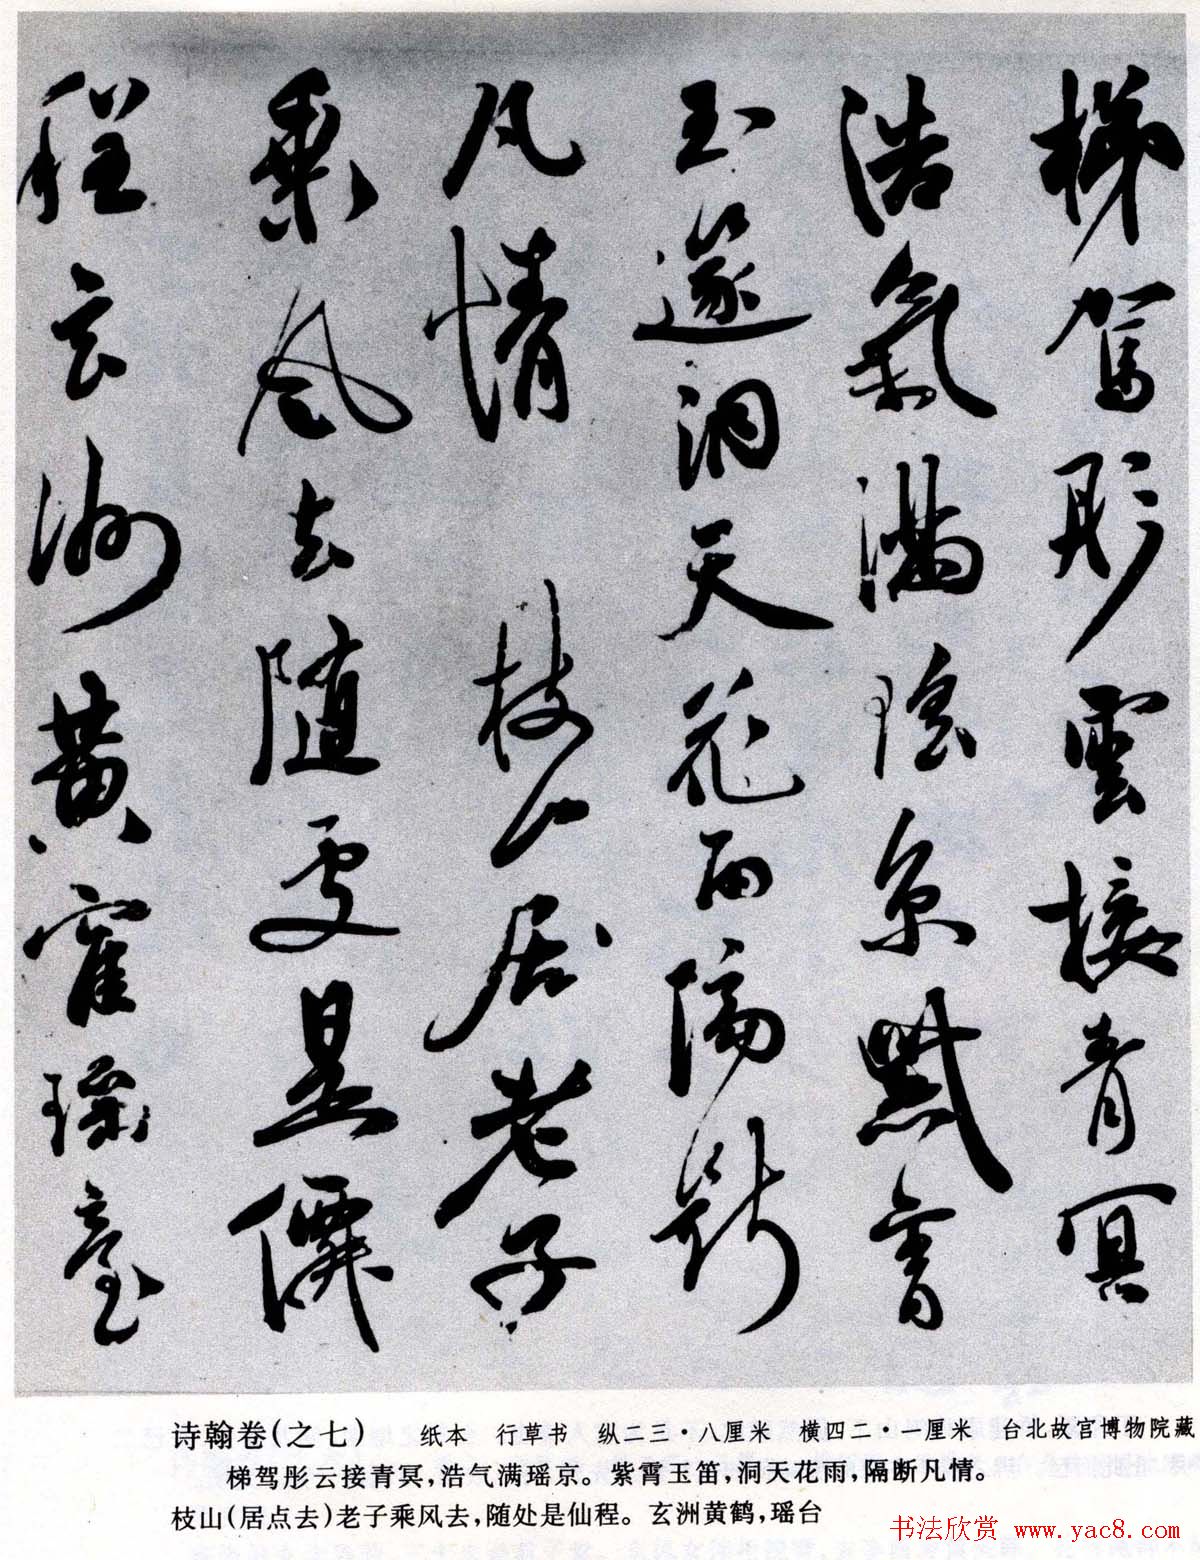 梯駕彤雲接青冥
浩氣滿瑤京紫霄
玉篴洞天花雨隔斷
凡情 枝山居老子
乘風去隨處是僊
程玄洲黃寉瑤臺
诗翰卷(之七) 纸本 行草书 纵二三·八厘米 横四二·一厘米 台北故宫博物院藏
梯驾彤云接青冥,浩气满瑶京。紫霄玉笛,洞天花雨,隔断凡情。
枝山(居点去)老子乘风去,随处是仙程。玄洲黄鹤,瑶台
书法欣赏 www.yac8.com